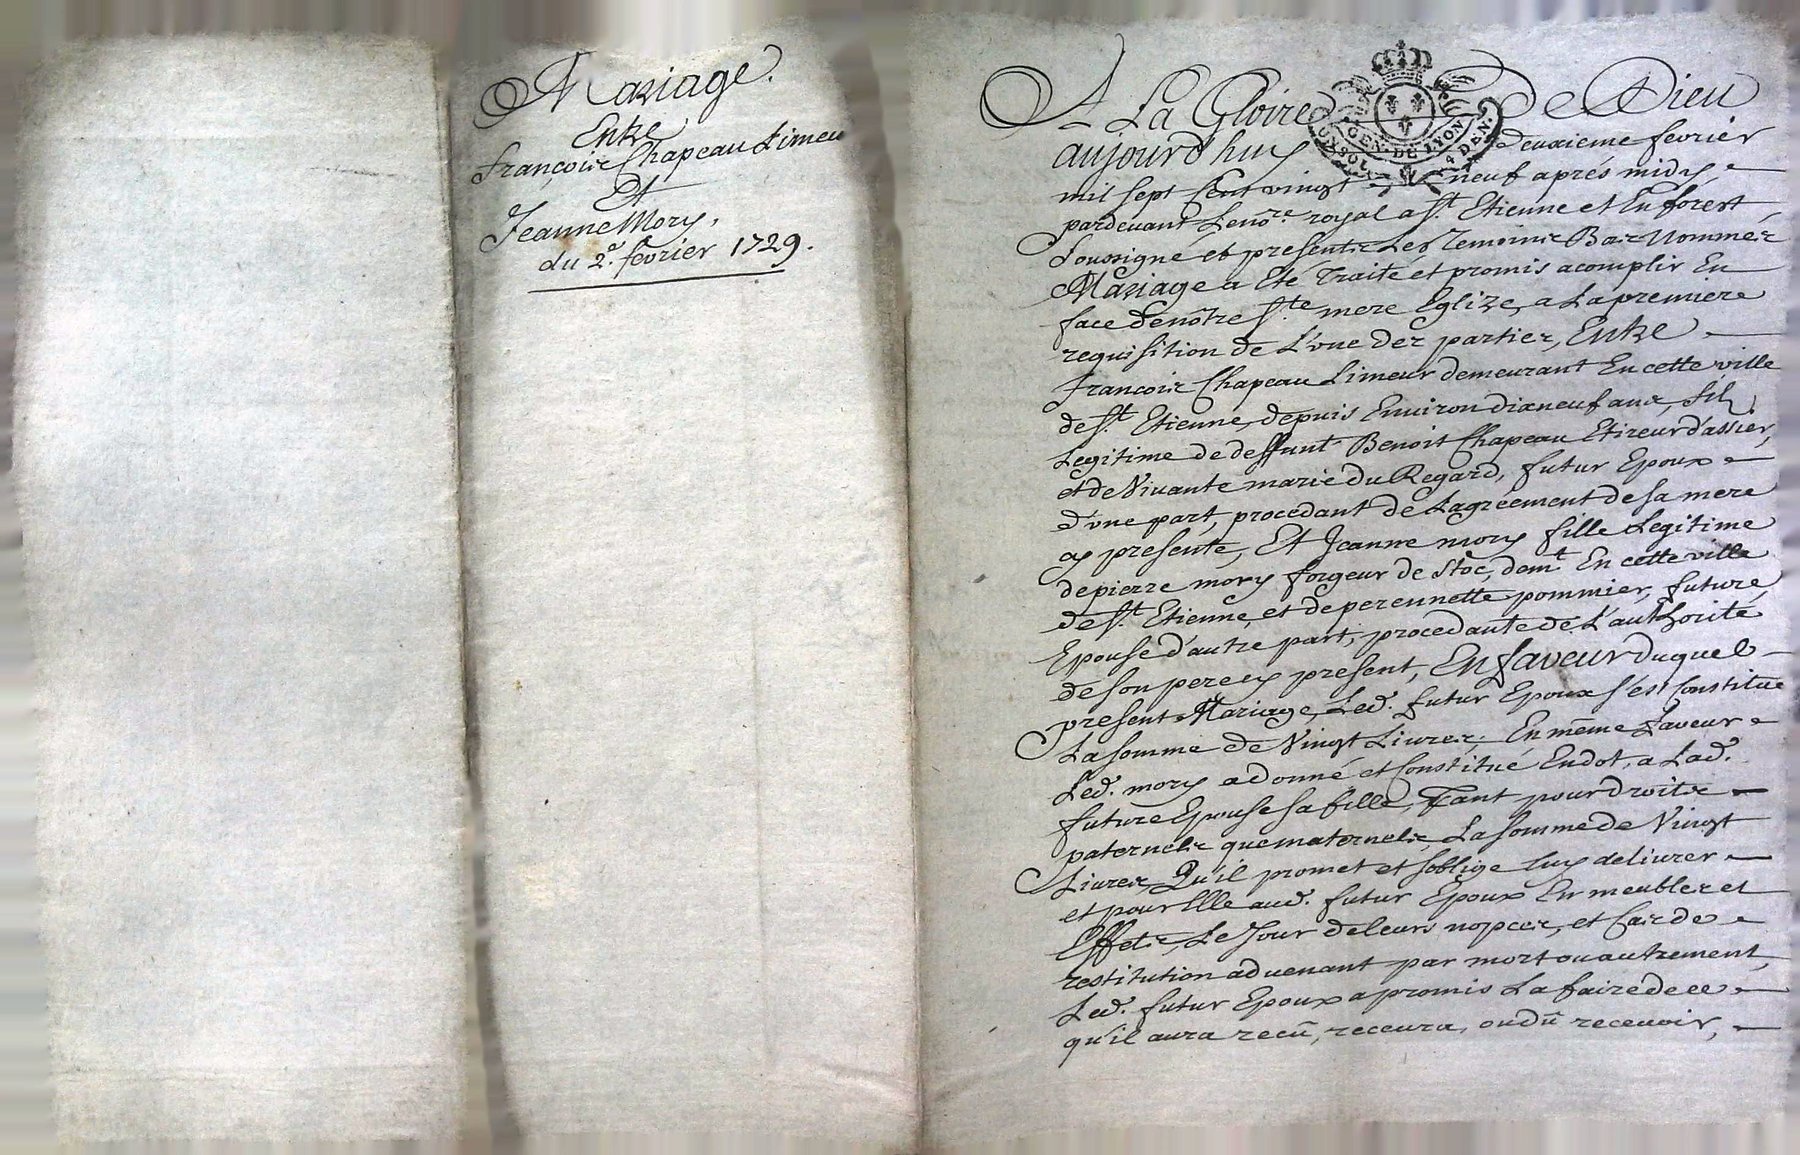 Mariage.
Entre
françois Chapeau Limeu
Et
Jeanne Mory,
du 2e. fevrier 1729.
A La Gloire de Dieu
GEN. DE LYON
4 DEN.
aujourd'huy deuxieme fevrier
mil sept Cent vingt neuf aprés midy,
pardevant Le nore. royal a St. Etienne et En forest
soussigné et presents Les Temoins Bas Nommez
Mariage a Eté Traité et promis acomplir En
face de nôtre Ste mere Eglize, a La premiere
requisition de L'vne des parties, Entre
françois Chapeau Limeur demeurant En cette ville
de St. Etienne, depuis Environ dix neuf ans, fils
Legitime de deffunt Benoit Chapeau Etireur d'assier,
et de Vivante marie du Regard, futur Epoux
d'vne part, procedant de L'agréement de sa mere
ay presente, Et Jeanne mory fille Legitime
de pierre mory forgeur de stoc, demt. En cette ville
de St. Etienne, et de perennette pommier, future
Epouse d'autre part, procedante de L'authorité
de son pere ay present, En faveur duquel
present Mariage, Led. futur Epoux s'est Constitué
La somme de Vingt Livres; En même faveur
Led. mory a donné et Constitué En dot, a Lad.
future Epouse sa fille, Tant pour droits
paternels que maternels La somme de Vingt
Livres, Qu'il promet et s'oblige luy delivrer
et pour Elle aud. futur Epoux En meubles et
Effets, Le Jour de leurs nopces, et Cas de
restitution advenant par mort ou autrement,
Led. futur Epoux a promis La faire de ce
qu'il aura recû, recevra, ou dû recevoir,